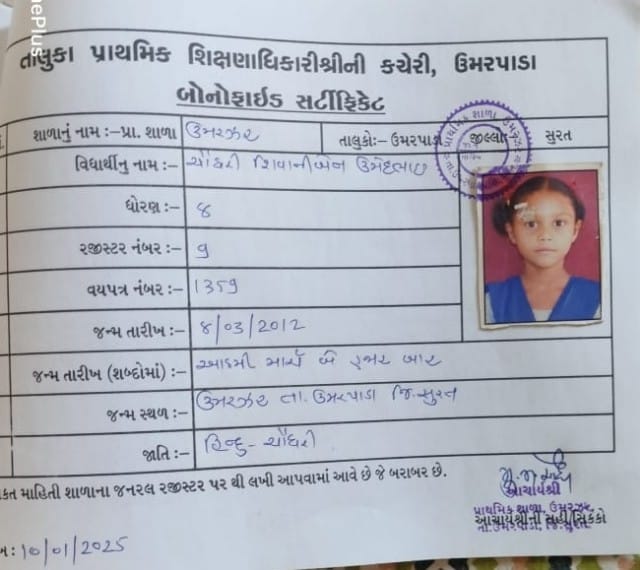 તાલુકા પ્રાથમિક શિક્ષણાધિકારીશ્રીની કચેરી, ઉમરપાડા
બોનોફાઈડ સર્ટીફિકેટ
શાળાનું નામ :- પ્રા. શાળા ઉમરઝર તાલુકો:- ઉમરપાડા જીલ્લો સુરત
વિદ્યાર્થીનુ નામ :- ચૌધરી શિવાનીબેન
ધોરણ :- ૪
રજીસ્ટર નંબર :- 9
વયપત્ર નંબર :- 1359
જન્મ તારીખ :- 8/03/2012
જન્મ તારીખ (શબ્દોમાં) :- આઠમી માર્ચ બે હજાર બાર
જન્મ સ્થળ :- ઉમરઝર તા. ઉમરપાડા જિ. સુરત
જાતિ :- હિન્દુ - ચૌધરી
કત માહિતી શાળાના જનરલ રજીસ્ટર પર થી લખી આપવામાં આવે છે જે બરાબર છે.
આચાર્યશ્રી
પ્રાથમિક શાળા, ઉમરઝર
આચાર્યશ્રીની સહી/સિક્કો
તા. ઉમરપાડા, જિ. સુરત
10/01/2025